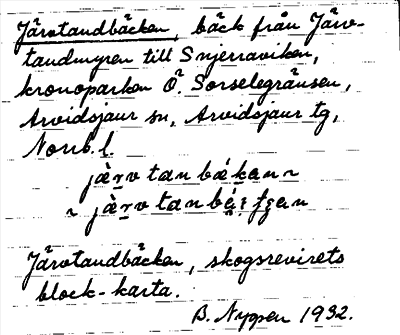 Järvtandbäcken, bäck från Järv-
tandmyren till Snjerraviken,
kronoparken Ö. Sorselegränsen,
Arvidsjaur sn, Arvidsjaur tg,
Norrb. l.
jàrv tan bákan ~
~ jàrv tan
Järvtandbäcken, skogsrevirets
block-karta.
B. Nyman 1932.